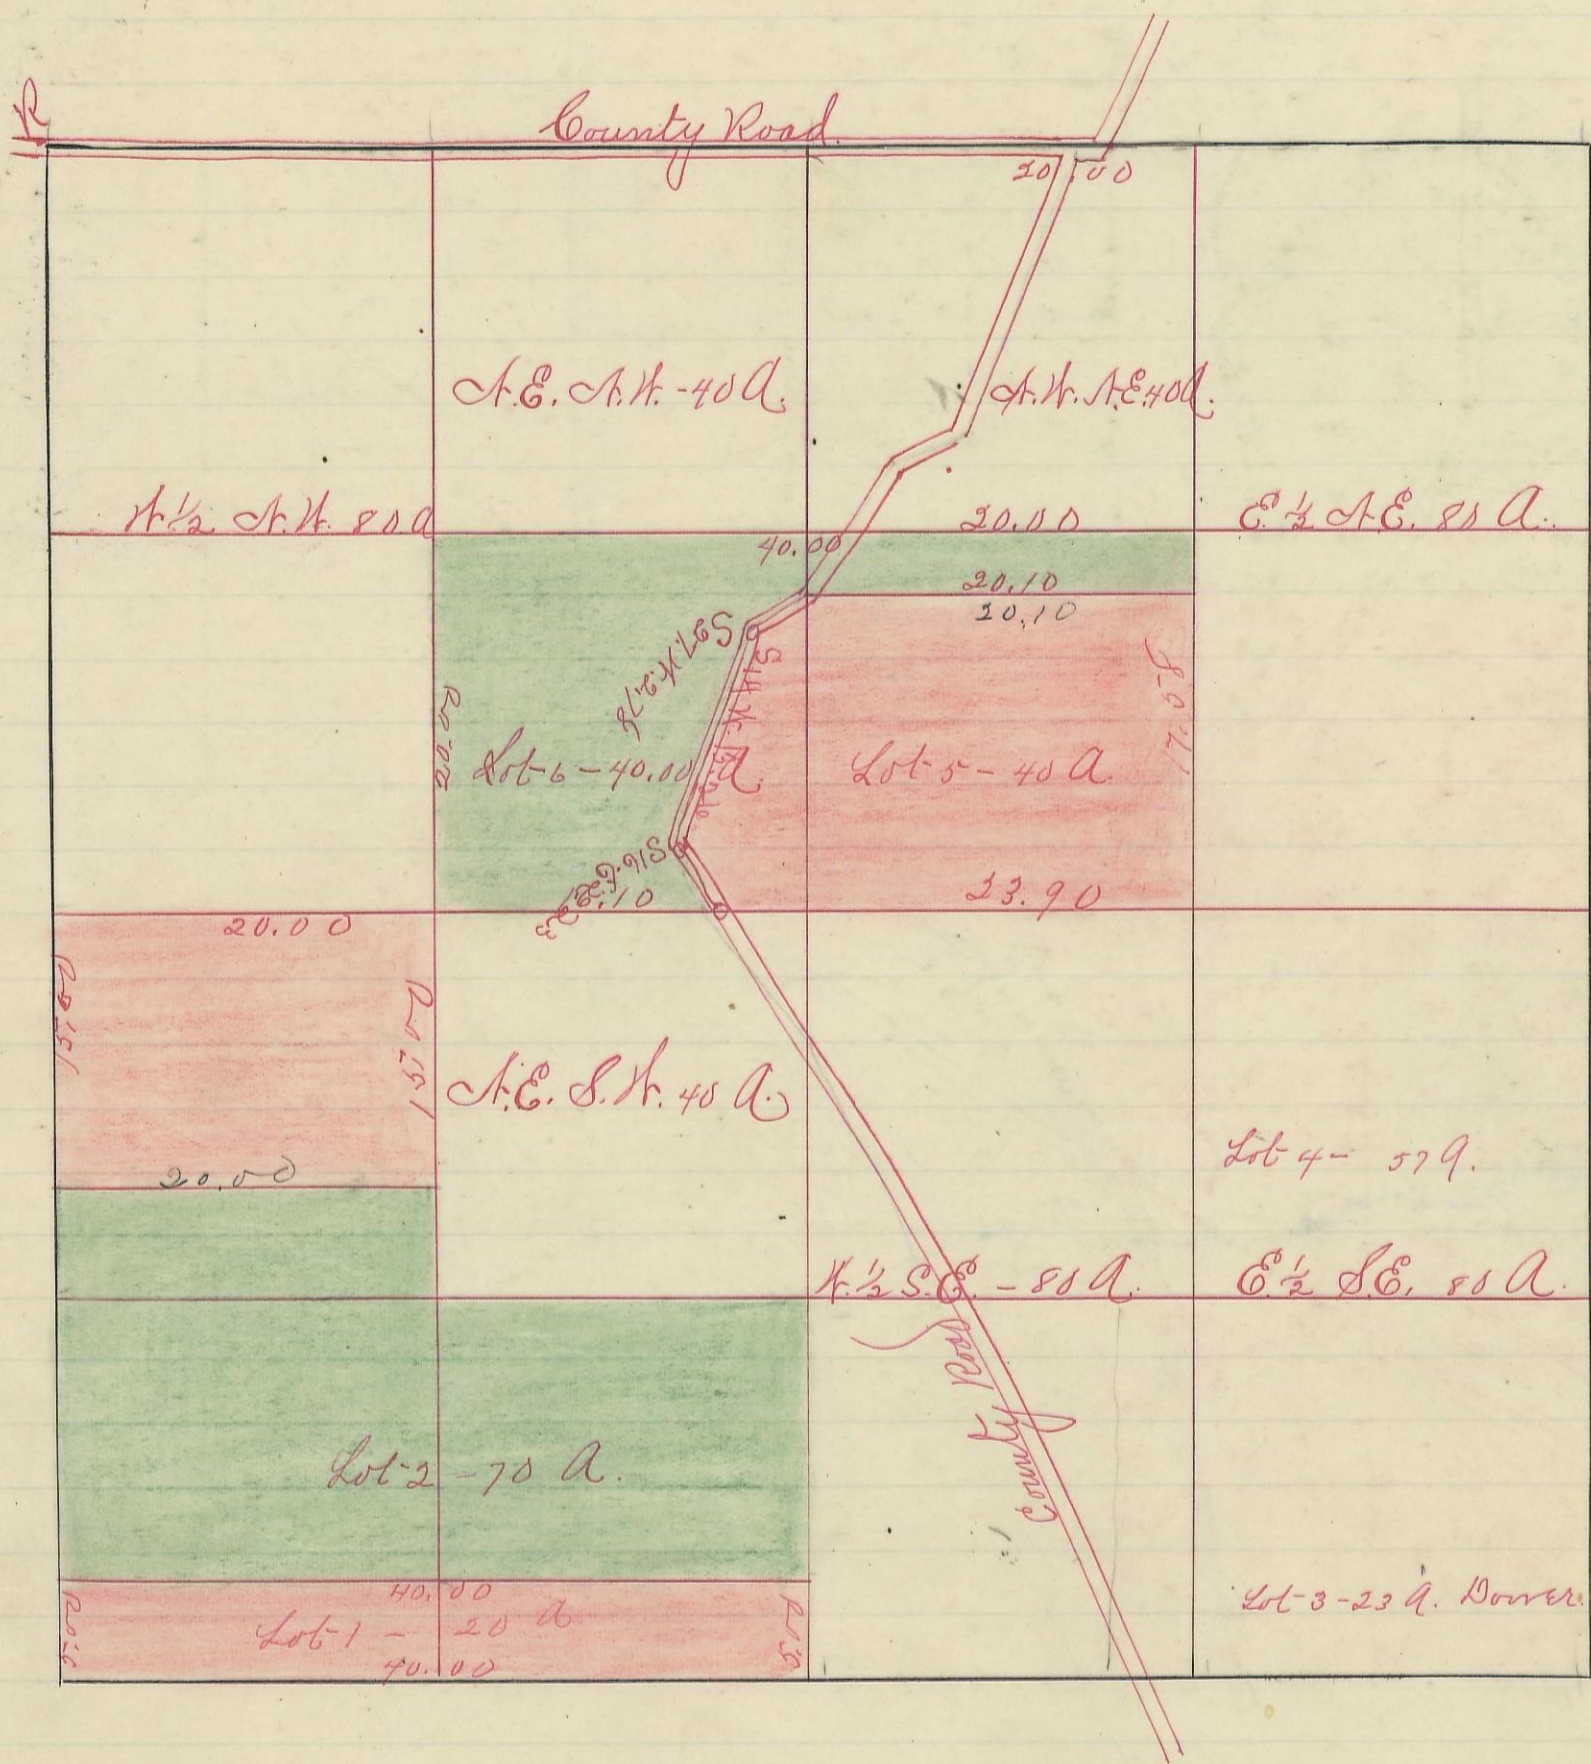 R
County Road
20.00
N.E. N.W. - 40 A.
N.W. N.E. 40 A.
W ½ N.W. 80 A
20.00
E. ½ N.E. 80 A.
40.00
20.10
20.10
S 14 W.
17.58
20.00
Lot 6 - 40.00 A.
Lot 5 - 40 A.
S16.E.
.10
23.90
20.00
N.E. S.W. 40 A.
20.00
Lot 4 - 57 A.
W. ½ S.E. - 80 A.
E. ½ S.E. 80 A.
County Road
Lot 2 - 70 A.
40.00
Lot 1 - 20 A
40.00
5.00
5.00
Lot 3 - 23 A. Dower.